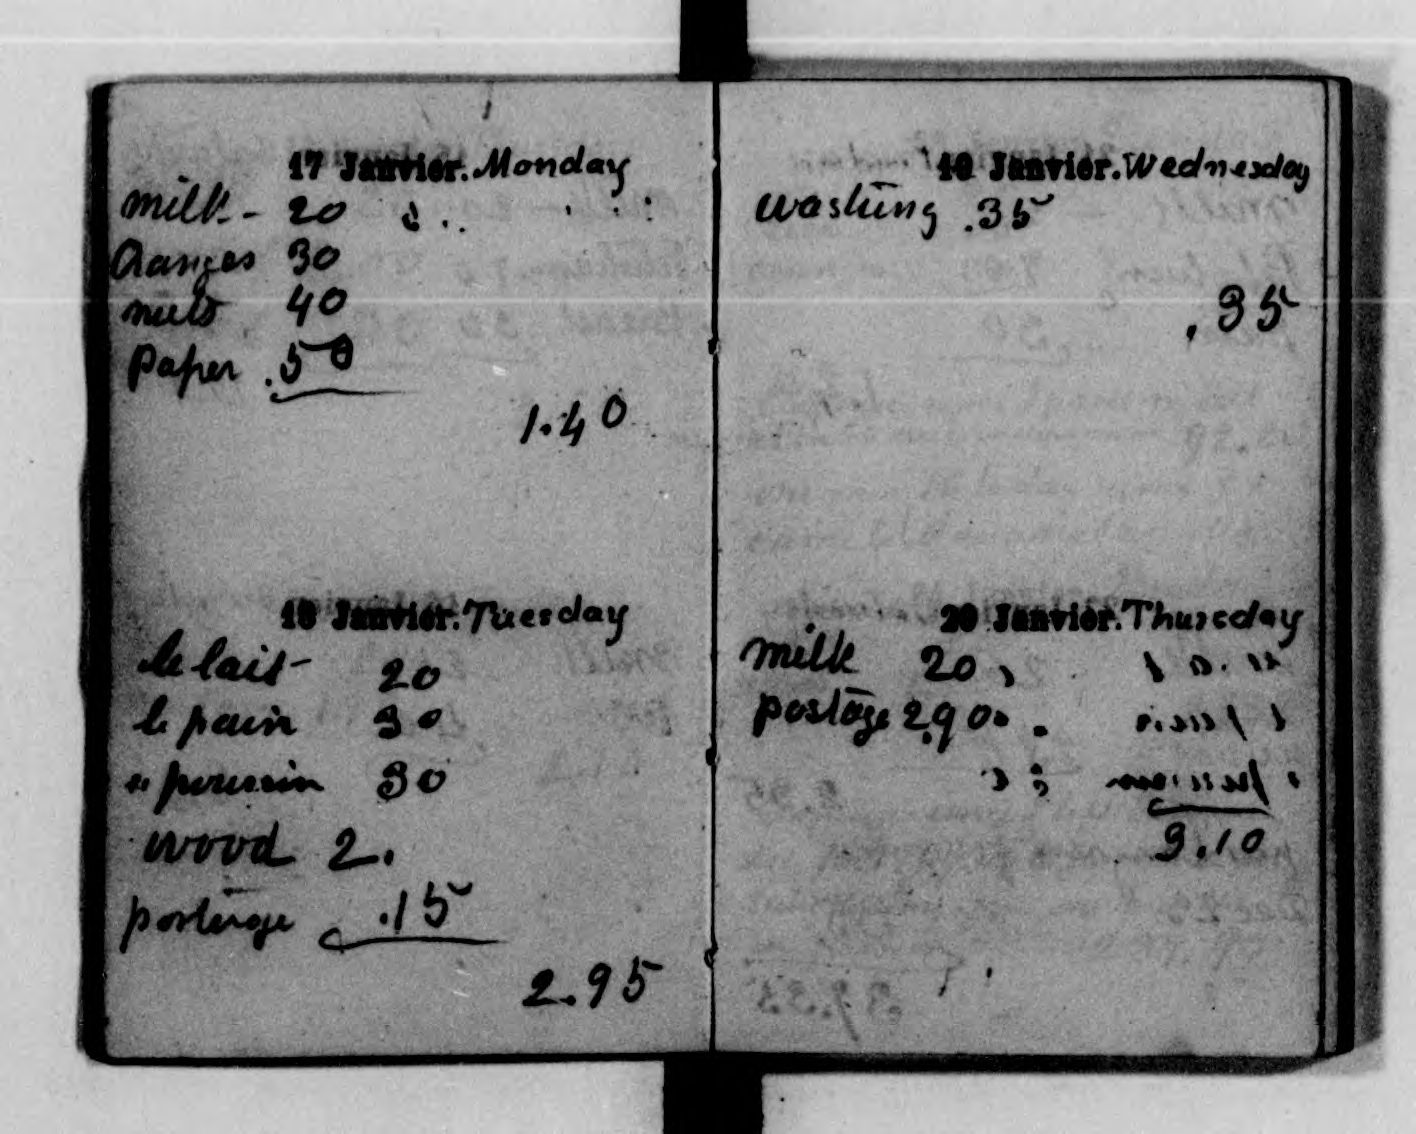 17 Janvier. Monday
milk - 20
Oranges 30
nuts 40
paper .50
1.40
18 Janvier. Tuesday
le lait 20
le pain 30
" poussin 30
wood 2.
postage .15
2.95
19 Janvier. Wednesday
washing .35
.35
20 Janvier. Thursday
milk 20
postage 2.90
3.10